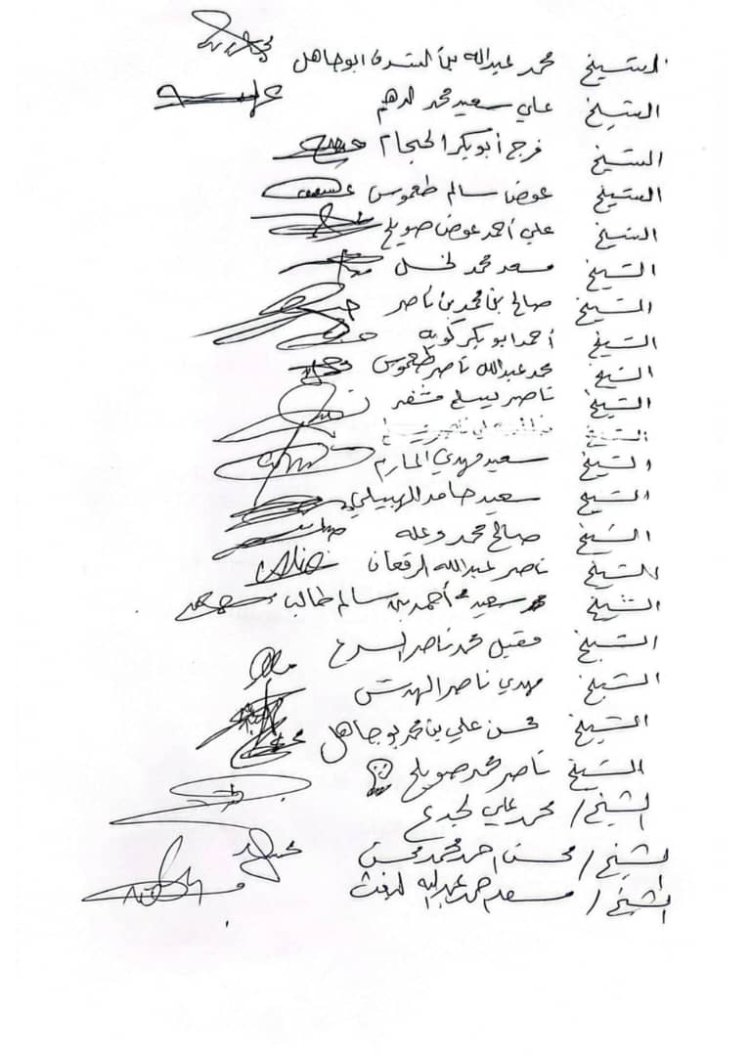 الشيخ محمد عبدالله بن ابوجاهل
الشيخ علي سعيد محمد لدهم
الشيخ فرج أبوبكر
الشيخ عوض سالم طعموس
الشيخ علي أحمد عوض صويلح
الشيخ مسعد محمد
الشيخ صالح بن محمد بن ناصر
الشيخ أحمد ابوبكر كويه
الشيخ محمد عبدالله ناصر طعموس
الشيخ ناصر يسلم مشفر
الشيخ
الشيخ سعيد مهدي المارم
الشيخ سعيد حامد الهبيلي
الشيخ صالح محمد وعله
الشيخ ناصر عبدالله الرقعان
الشيخ سعيد أحمد بن سالم طالب
الشيخ مقبل محمد ناصر
الشيخ مهدي ناصر
الشيخ محسن علي بن محمد بوجاهل
الشيخ ناصر محمد صويلح
الشيخ / محمد علي لجدع
الشيخ / محسن احمد محمد محسن
الشيخ / مسعد احمد عبدالله